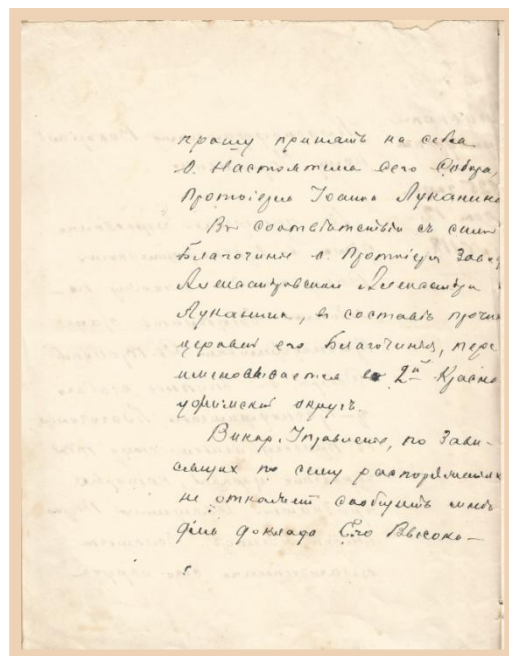 прошу принять на себя
о. Настоятеля сего Собора,
Протоіерея Іоанна Луканина
Въ соотвѣтствіи съ симъ
Благочиніе о. Протоіерея Завод
Александровскаго Александра
Луканина, въ составѣ прочихъ
церквей его Благочинія, пере
именовывается во 2й Красно
уфимскій округъ.
Викар. Управленіе, по Зави-
сящихъ по сему распоряженіяхъ
не откажетъ сообщить мнѣ
для доклада Его Высоко-